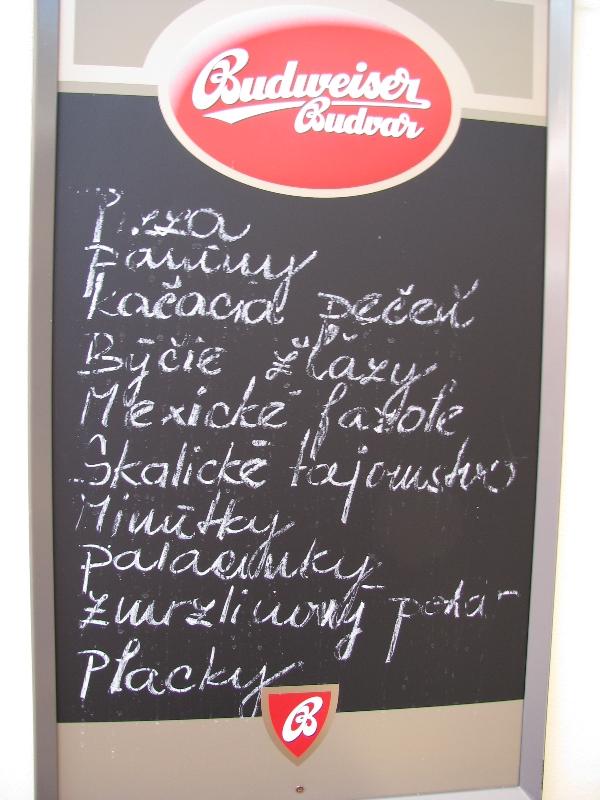 Budweiser
Budvar
Pizza
Paniny
Kačacia pečeň
Býčie žľazy
Mexické fazole
Skalické tajomstvo
Minútky
Palacinky
Zmrzlinový pohár
Placky
B